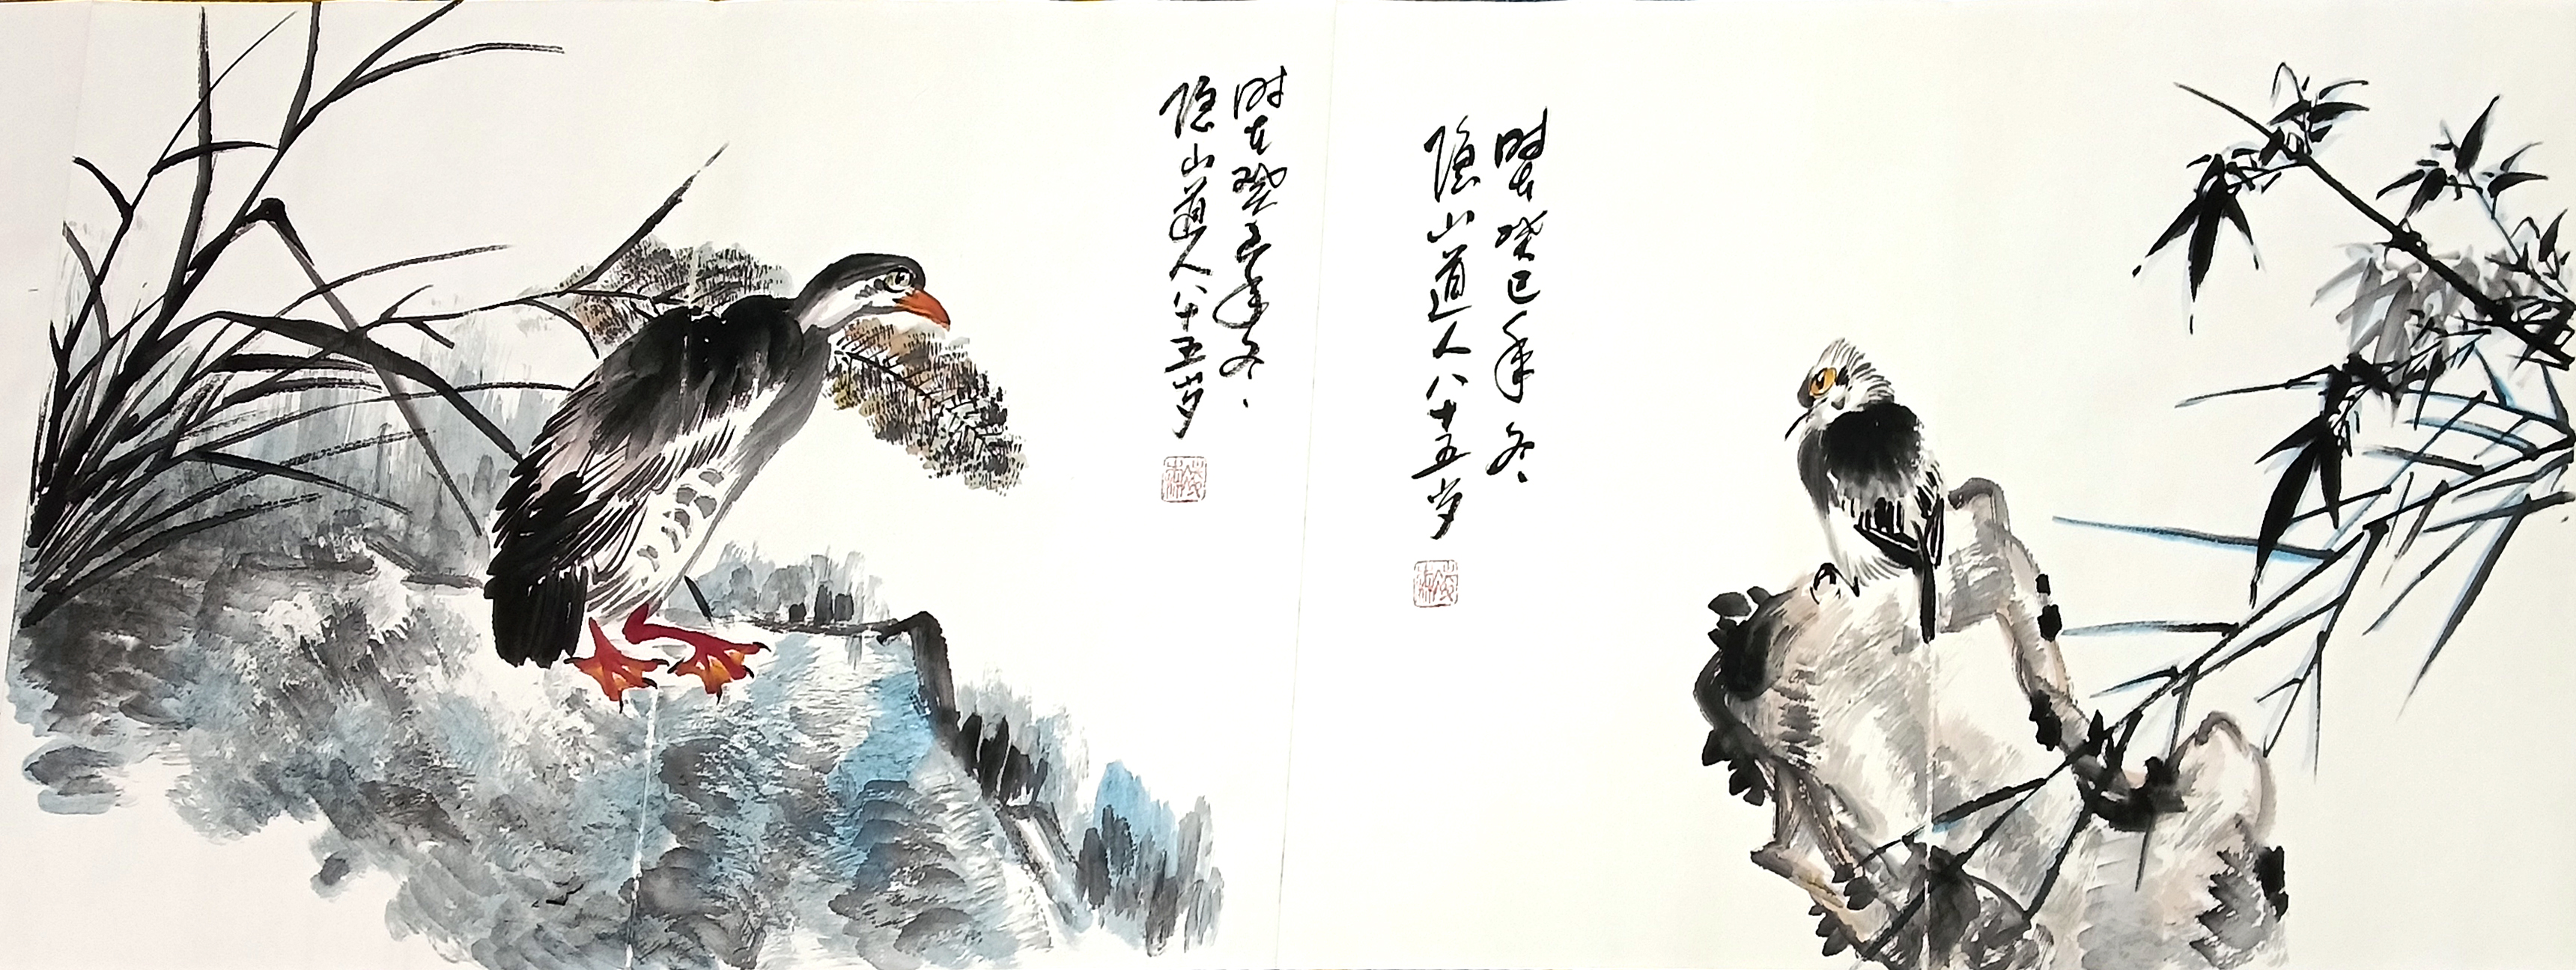 时在癸巳年冬
隐山道人八十五岁
时在癸巳年冬
隐山道人八十五岁